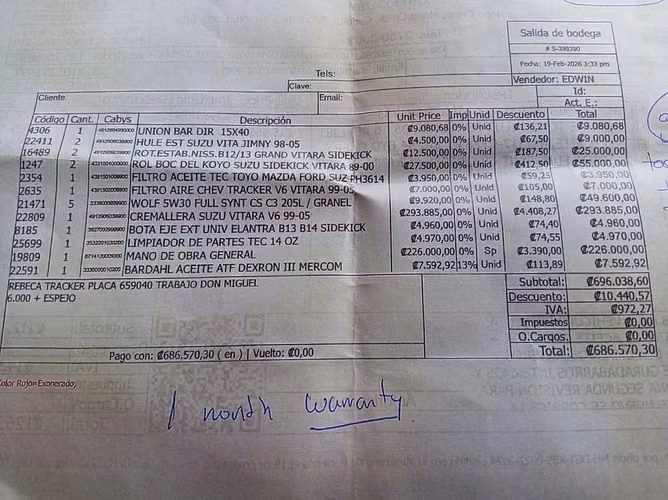 Salida de bodega
# S-399390
Fecha: 19-Feb-2026 3:33 pm
Tels:
Vendedor: EDWIN
Clave:
Id:
Cliente:
Email:
Act. E.:
Código Cant. Cabys Descripción Unit Price Imp Unid Descuento Total
4306 1 UNION BAR DIR 15X40 ₡9.080,68 0% Unid ₡136,21 ₡9.080,68
22411 2 HULE EST SUZU VITA JIMNY 98-05 ₡4.500,00 0% Unid ₡67,50 ₡9.000,00
16489 2 ROT.ESTAB.NISS.B12/13 GRAND VITARA SIDEKICK ₡12.500,00 0% Unid ₡187,50 ₡25.000,00
1247 2 ROL BOC DEL KOYO SUZU SIDEKICK VITARA 89-00 ₡27.500,00 0% Unid ₡412,50 ₡55.000,00
2354 1 FILTRO ACEITE TEC TOYO MAZDA FORD SUZ PH3614 ₡3.950,00 0% Unid ₡59,25 ₡3.950,00
2635 1 FILTRO AIRE CHEV TRACKER V6 VITARA 99-05 ₡7.000,00 0% Unid ₡105,00 ₡7.000,00
21471 5 WOLF 5W30 FULL SYNT CS C3 205L / GRANEL ₡9.920,00 0% Unid ₡148,80 ₡49.600,00
22809 1 CREMALLERA SUZU VITARA V6 99-05 ₡293.885,00 0% Unid ₡4.408,27 ₡293.885,00
8185 1 BOTA EJE EXT UNIV ELANTRA B13 B14 SIDEKICK ₡4.960,00 0% Unid ₡74,40 ₡4.960,00
25699 1 LIMPIADOR DE PARTES TEC 14 OZ ₡4.970,00 0% Unid ₡74,55 ₡4.970,00
19809 1 MANO DE OBRA GENERAL ₡226.000,00 0% Sp ₡3.390,00 ₡226.000,00
22591 1 BARDAHL ACEITE ATF DEXRON III MERCOM ₡7.592,92 13% Unid ₡113,89 ₡7.592,92
REBECA TRACKER PLACA 659040 TRABAJO DON MIGUEL
6.000 + ESPEJO
Subtotal: ₡696.038,60
Descuento: ₡10.440,57
IVA: ₡972,27
Impuestos ₡0,00
O.Cargos. ₡0,00
Total: ₡686.570,30
Pago con: ₡686.570,30 ( en ) | Vuelto: ₡0,00
Color Rojo=Exonerado,
1 month warranty